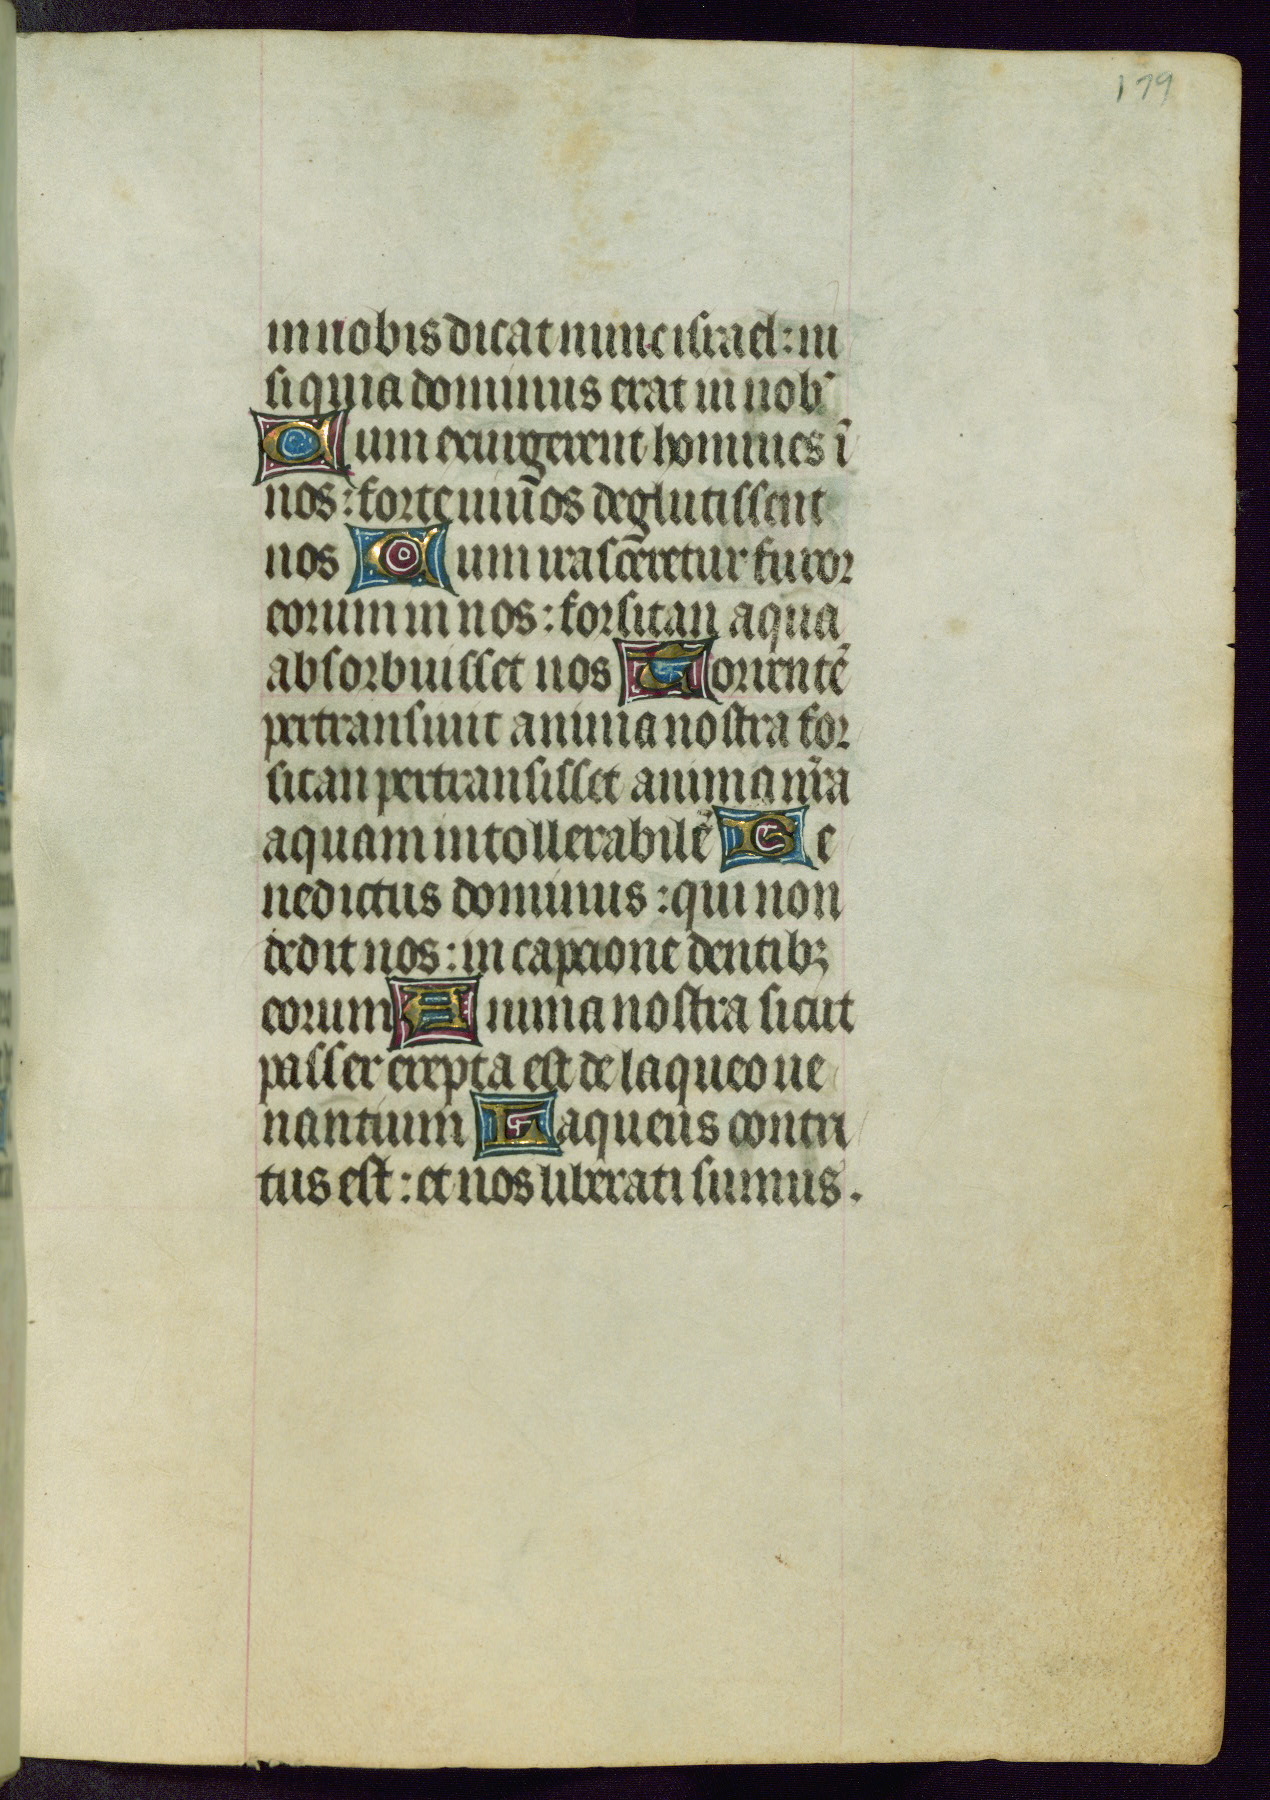 179
in nobis dicat nunc israel: ni
si quia dominus erat in nob'
Cum exurgerent homines ī
nos: forte uiūos deglutissent
nos Cum irascēretur furor
eorum in nos: forsitan aqua
absorbuisset nos Torrentē
pertransiuit anima nostra for
sitan pertransisset anima nr̄a
aquam intollerabilē Be
nedictus dominus: qui non
dedit nos: in capcione dentibꝫ
eorum Anima nostra sicut
passer erepta est de laqueo ue
nantium Laqueus contri
tus est: et nos liberati sumus.